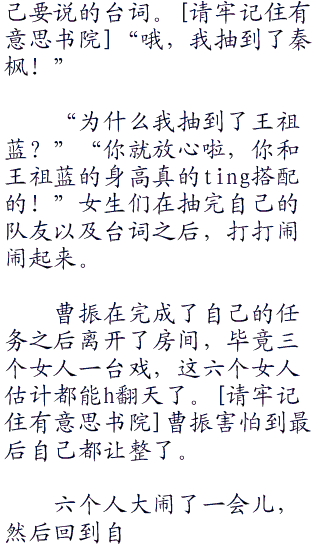 己要说的台词。[请牢记住有
意思书院]“哦，我抽到了秦
枫！”
“为什么我抽到了王祖
蓝？”“你就放心啦，你和
王祖蓝的身高真的ting搭配
的！”女生们在抽完自己的
队友以及台词之后，打打闹
闹起来。
曹振在完成了自己的任
务之后离开了房间，毕竟三
个女人一台戏，这六个女人
估计都能h翻天了。[请牢记
住有意思书院]曹振害怕到最
后自己都让整了。
六个人大闹了一会儿，
然后回到自